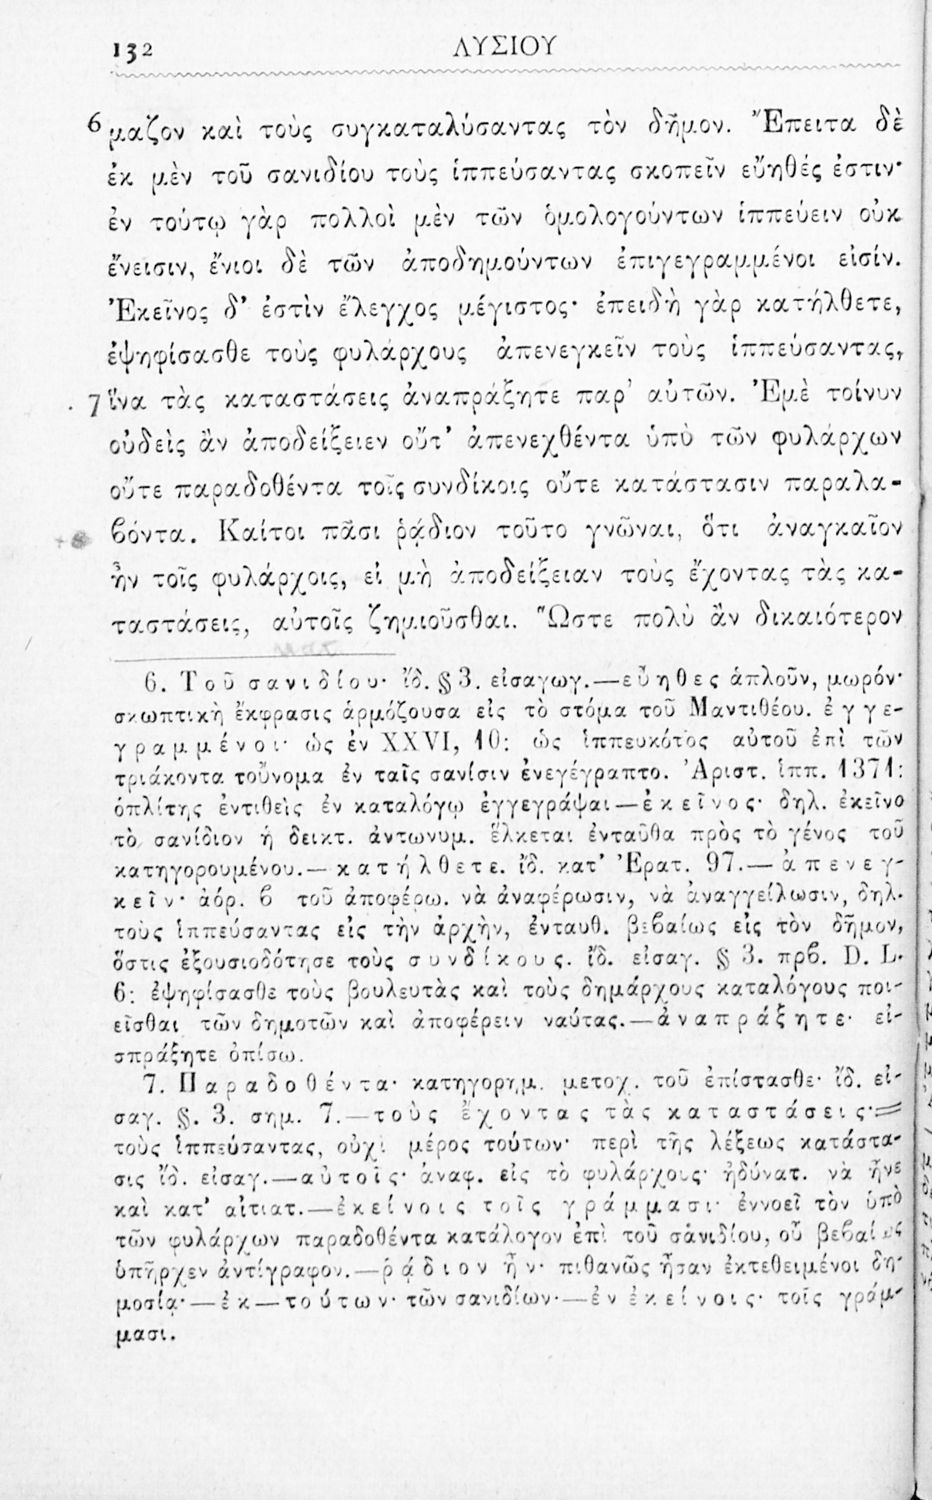 132 ΛΥΣΙΟΥ
6 μαζον καὶ τοὺς συγκαταλύσαντας τὸν δῆμον. Ἔπειτα δὲ
ἐκ μὲν τοῦ σανιδίου τοὺς ἱππεύσαντας σκοπεῖν εὔηθές ἐστιν·
ἐν τούτῳ γὰρ πολλοὶ μὲν τῶν ὁμολογούντων ἱππεύειν οὐκ
ἔνεισιν, ἔνιοι δὲ τῶν ἀποδημούντων ἐπιγεγραμμένοι εἰσίν.
Ἐκεῖνος δ' ἐστὶν ἔλεγχος μέγιστος· ἐπειδὴ γὰρ κατήλθετε,
ἐψηφίσασθε τοὺς φυλάρχους ἀπενεγκεῖν τοὺς ἱππεύσαντας,
7 ἵνα τὰς καταστάσεις ἀναπράξητε παρ' αὐτῶν. Ἐμὲ τοίνυν
οὐδεὶς ἂν ἀποδείξειεν οὔτ' ἀπενεχθέντα ὑπὸ τῶν φυλάρχων
οὔτε παραδοθέντα τοῖς συνδίκοις οὔτε κατάστασιν παραλα-
ϐόντα. Καίτοι πᾶσι ῥᾴδιον τοῦτο γνῶναι, ὅτι ἀναγκαῖον
ἦν τοῖς φυλάρχοις, εἰ μὴ ἀποδείξειαν τοὺς ἔχοντας τὰς κα-
ταστάσεις, αὐτοῖς ζημιοῦσθαι. Ὥστε πολὺ ἂν δικαιότερον
6. Τοῦ σανιδίου· ἴδ. § 3. εἰσαγωγ.—εὔηθες ἁπλοῦν, μωρόν·
σκωπτικὴ ἔκφρασις ἁρμόζουσα εἰς τὸ στόμα τοῦ Μαντιθέου. ἐγγε-
γραμμένοι· ὡς ἐν XXVI, 10: ὡς ἱππευκότος αὐτοῦ ἐπὶ τῶν
τριάκοντα τοὔνομα ἐν ταῖς σανίσιν ἐνεγέγραπτο. Ἀριστ. ἱππ. 1371:
ὁπλίτης ἐντιθεὶς ἐν καταλόγῳ ἐγγεγράψαι—ἐκεῖνος· δηλ. ἐκεῖνο
τὸ σανίδιον ἡ δεικτ. ἀντωνυμ. ἕλκεται ἐνταῦθα πρὸς τὸ γένος τοῦ
κατηγορουμένου.—κατήλθετε. ἴδ. κατ' Ἐρατ. 97.—ἀπενεγ-
κεῖν· ἀόρ. ϐ τοῦ ἀποφέρω. νὰ ἀναφέρωσιν, νὰ ἀναγγείλωσιν, δηλ.
τοὺς ἱππεύσαντας εἰς τὴν ἀρχὴν, ἐνταυθ. βεϐαίως εἰς τὸν δῆμον,
ὅστις ἐξουσιοδότησε τοὺς συνδίκους. ἴδ. εἰσαγ. § 3. πρϐ. D. L.
6: ἐψηφίσασθε τοὺς βουλευτὰς καὶ τοὺς δημάρχους καταλόγους ποι-
εῖσθαι τῶν δημοτῶν καὶ ἀποφέρειν ναύτας.—ἀναπράξητε· εἰ-
σπράξητε ὀπίσω.
7. Παραδοθέντα· κατηγορημ. μετοχ. τοῦ ἐπίστασθε· ἴδ. εἰ-
σαγ. §. 3. σημ. 7.—τοὺς ἔχοντας τὰς καταστάσεις·=
τοὺς ἱππεύσαντας, οὐχὶ μέρος τούτων· περὶ τῆς λέξεως κατάστα-
σις ἴδ. εἰσαγ.—αὐτοῖς· ἀναφ. εἰς τὸ φυλάρχοις· ἠδύνατ. νὰ ἦνε
καὶ κατ' αἰτιατ.—ἐκείνοις τοῖς γράμμασι· ἐννοεῖ τὸν ὑπὸ
τῶν φυλάρχων παραδοθέντα κατάλογον ἐπὶ τοῦ σανιδίου, οὗ βεϐαίως
ὑπῆρχεν ἀντίγραφον.—ῥᾴδιον ἦν· πιθανῶς ἦσαν ἐκτεθειμένοι δη-
μοσίᾳ·—ἐκ—τούτων· τῶν σανιδίων·—ἐν ἐκείνοις· τοῖς γράμ-
μασι.